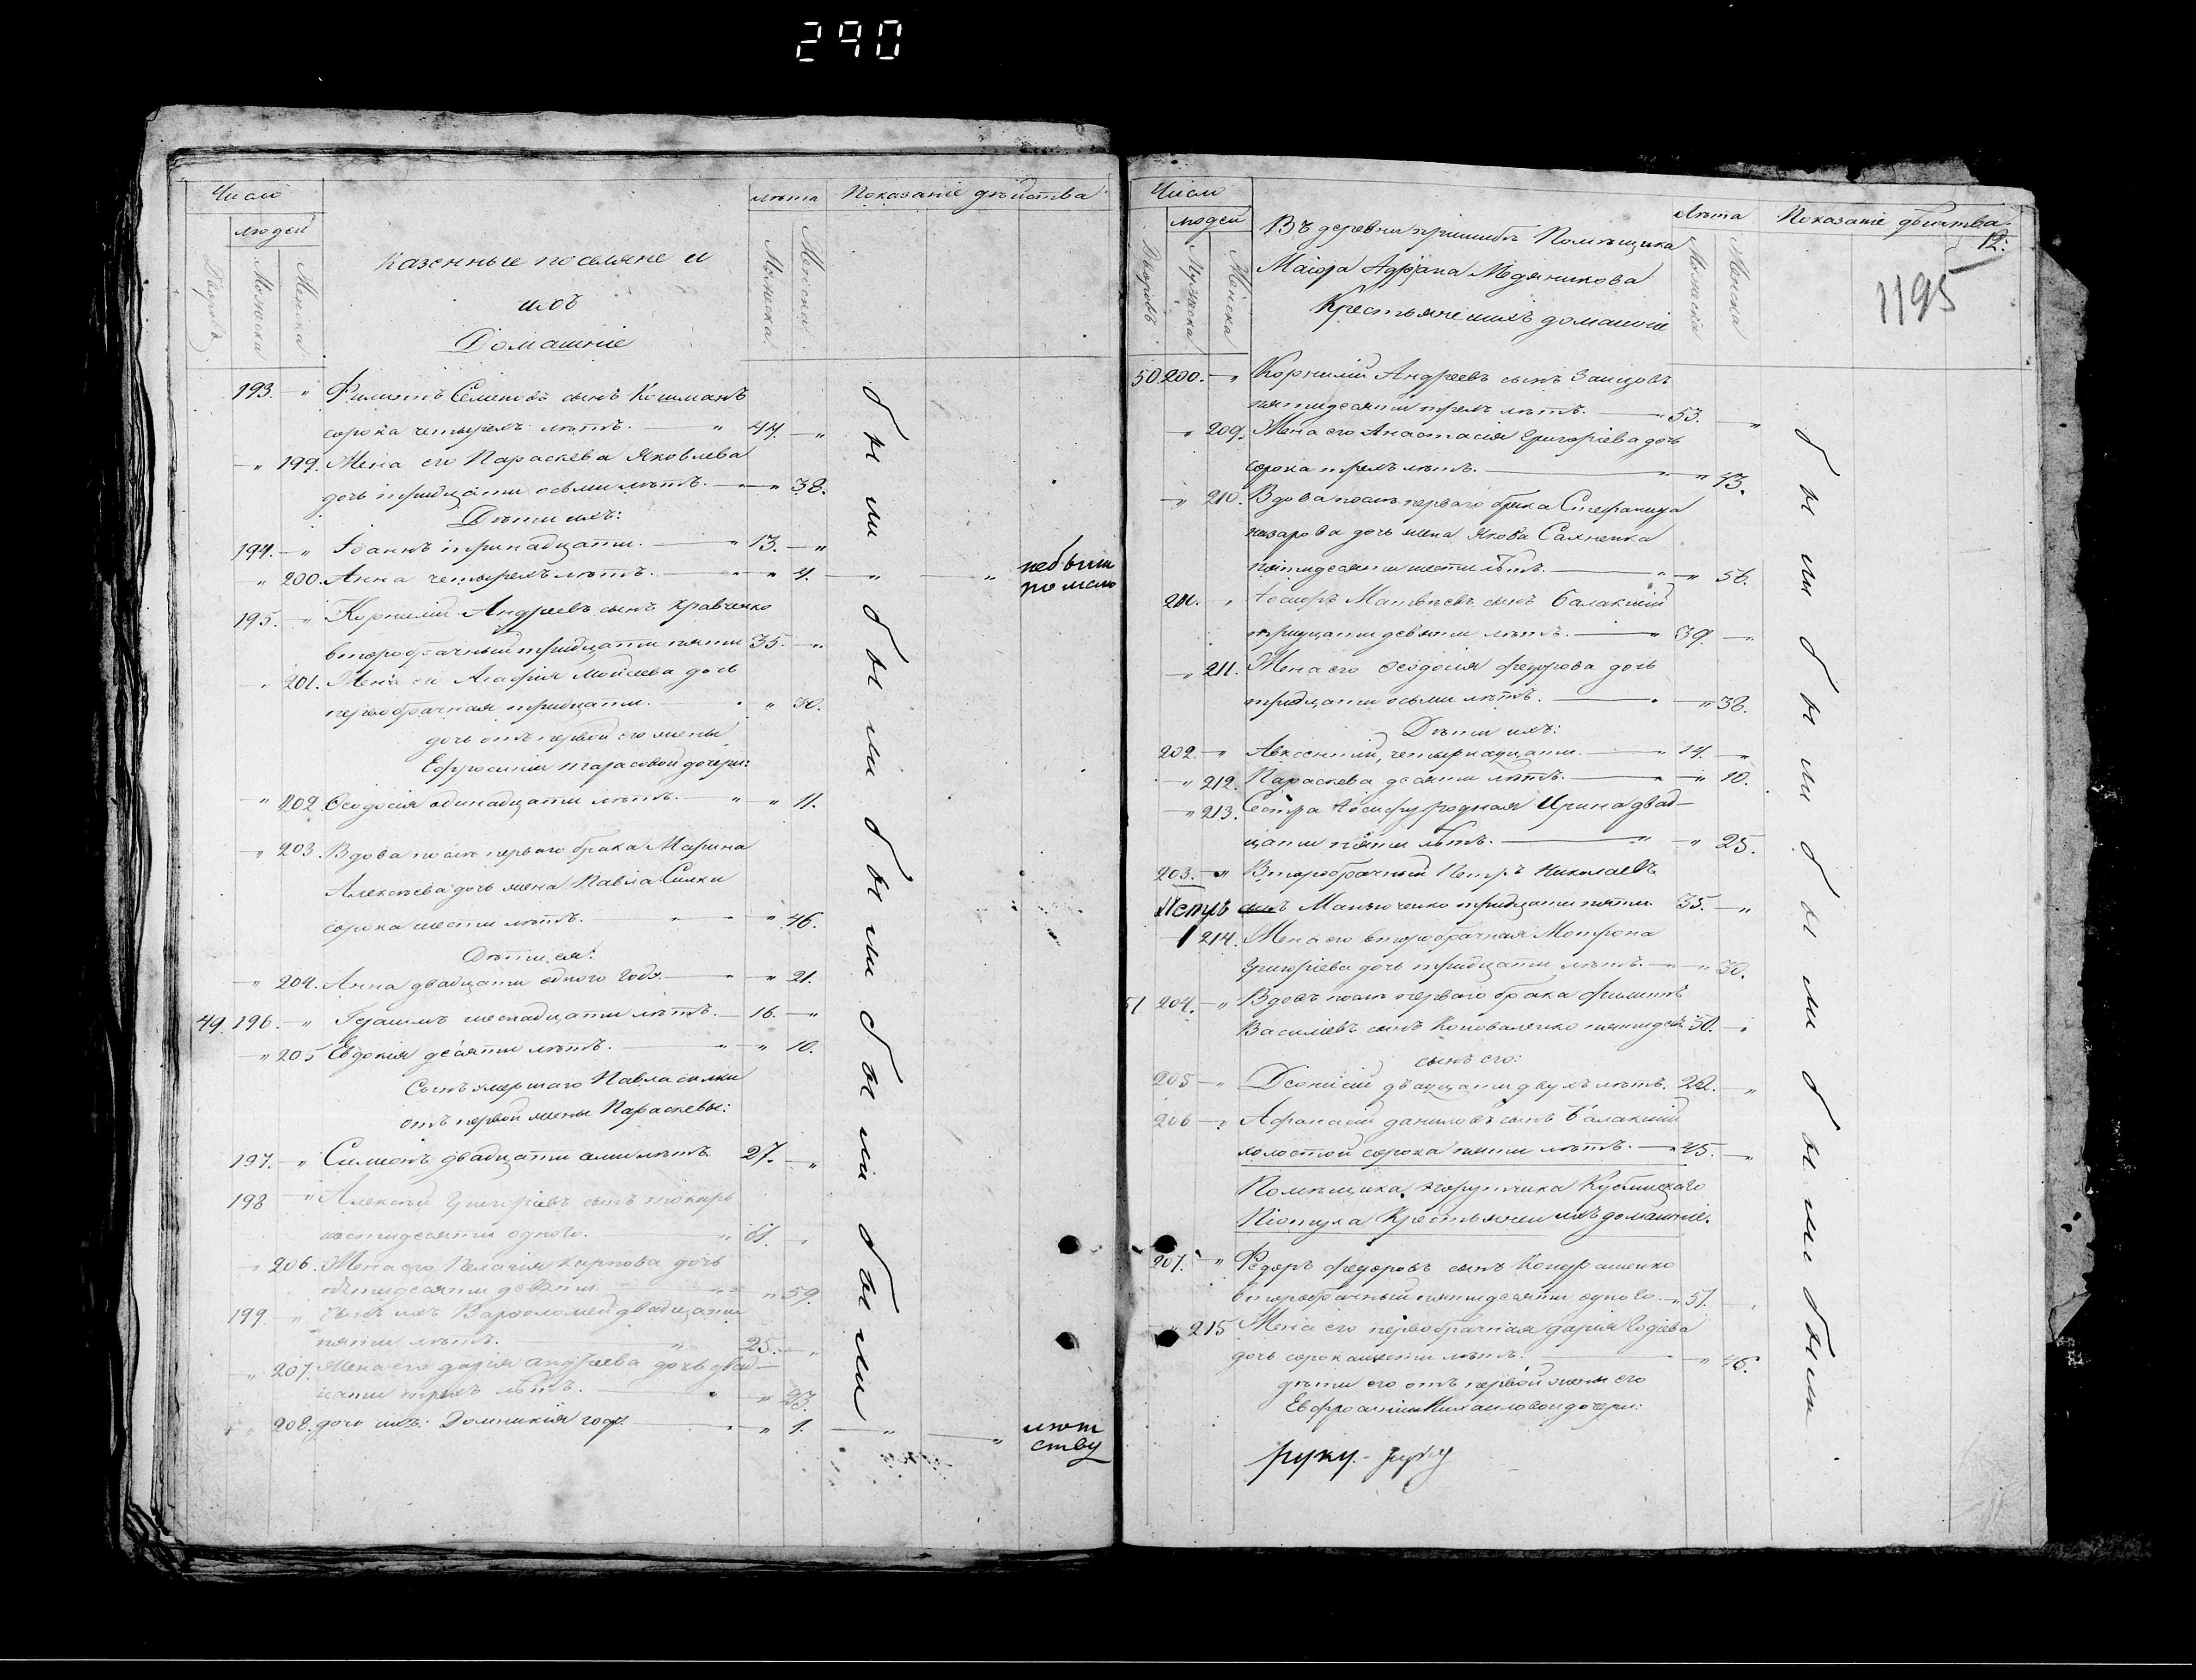 290
Число
лѣта
Показаніе дѣйства
людей
Дворовъ
Мужеска
Женска
Мужеска
Женска
Казенные поселяне и
ихъ
Домашніе
193. — " Филиппъ Семеновъ сынъ Кошманъ
сорока четырехъ лѣтъ. — " 44. — "
— " 199. Жена его Параскева Яковлева
дочь тридцати осьми лѣтъ. — " 38.
Дѣти ихъ:
194. — " Іоаннъ тринадцати. — " 13. — "
" 200. Анна четырехъ лѣтъ. — " " 4. — " — " небыли
по мало
195. — " Корнилій Андреевъ сынъ Кравченко
второбрачный тридцати пяти 35. — "
— " 201. Жена его Агафія Моисеева дочь
первобрачная тридцати. — " " 30.
дочь отъ первой его жены
Ефросиніи Тарасовой дочери:
— " 202 Ѳеодосія одинадцати лѣтъ. — " " 11.
— " 203. Вдова послѣ перваго брака Марина
Алексѣева дочь жена Павла Силки
сорока шести лѣтъ. " — " 46.
Дѣти ея:
— " 204. Анна двадцати одного года — " " 21.
49. 196. — " Іоакимъ шеснадцати лѣтъ. — 16. — "
— " 205 Евдокія десяти лѣтъ. — " " 10.
Сынъ умершаго Павла Силки
отъ первой жены Параскевы:
197. — " Симеонъ двадцати семи лѣтъ. 27. — "
198 — " Алексѣй Григоріевъ сынъ Токарь
шестидесяти одного. — " 61. —
— " 206. Жена его Пелагія Карпова дочь
пятидесяти девяти. — " " 59.
199. " Сынъ ихъ Варѳоломей двадцати
пяти лѣтъ. — " 25. — "
— " 207. Жена его Дарія Андреева дочь двад-
цати трехъ лѣтъ. — " " 23.
" 208. дочь ихъ: Домникія году — " " 1. — " — " лѣт
ству
были были были были были
Число
людей
Дворовъ
Мужеска
Женска
Въ деревни Пришибѣ Помѣщика
Маіора Адріана Медяникова
Крестьяне и ихъ домашніе
лѣта
Мужеска
Женска
Показаніе дѣйства
12:
1195
50. 200. — " Корнилій Андреевъ сынъ Заицовъ
пятидесяти трехъ лѣтъ. — " 53. — "
" 209. Жена его Анастасія Григоріева дочь
сорока трехъ лѣтъ. — " " 43.
— " 210. Вдова послѣ перваго брака Стефанида
Назарова дочь жена Якова
пятидесяти шести лѣтъ. — " — " 56.
201. " Іосифъ Матвѣевъ сынъ Балакшій
тридцати девяти лѣтъ. — " 39. — "
— " 211. Жена его Ѳеодосія Федорова дочь
тридцати осьми лѣтъ. — " — " 38.
Дѣти ихъ:
202. — " Авксентій, четырнадцати. — " 14. — "
— " 212. Параскева десяти лѣтъ. — " — " 10.
— " 213. Сестра Іосифу родная Ирина двад-
цати пяти лѣтъ. — " — " 25.
203. — " Второбрачный Петръ Николаевъ
сынъ Манжоченко тридцати пяти 35. — "
214. Жена его второбрачная Мотрона
Григоріева дочь тридцати лѣтъ. — " — " 30.
51 204. — " Вдовъ послѣ перваго брака Филиппъ
Василіевъ сынъ Коноваленко пятидес. 50. — "
сынъ его:
205 — " Діонисій двадцати двухъ лѣтъ. 22. — "
206 — " Афанасій Даниловъ сынъ Балакшій
холостой сорока пяти лѣтъ. — " 45. — "
Помѣщика порутчика
Крестьяне и ихъ домашніе.
207. — " Федоръ Федоровъ сынъ Кондрашенко
второбрачный пятидесяти одного — " 51. —
— " 215 Жена его первобрачная Дарія
дочь сорока шести лѣтъ. — " 46.
дѣти его отъ первой жены его
Евфросиніи Михаиловой дочери:
были были были были были
руку - руку